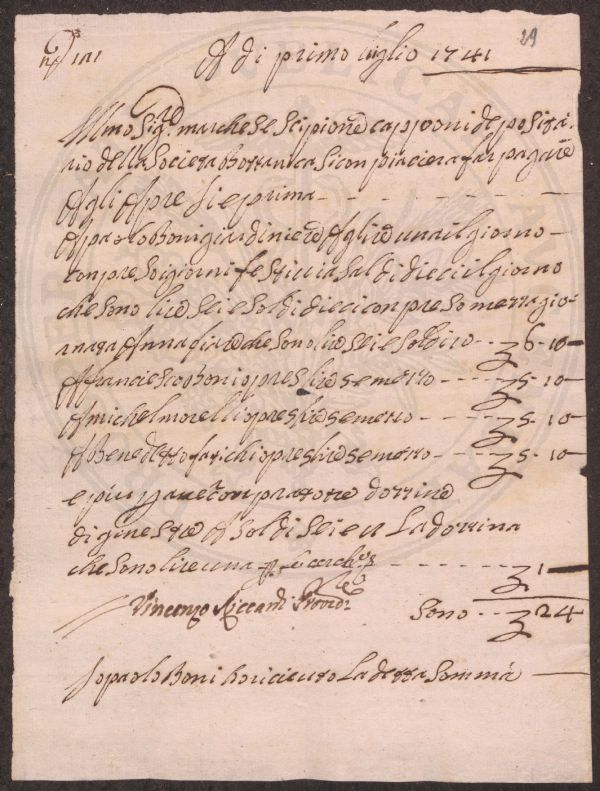 29
nº 101
A di primo luglio 1741
Illmo Sigre marchese Scipione capponi depositá
rio della Società Bottanica Si conpiacierà far pagare
Agli Opre Si e prima
A paolo Boni giardiniere A lire una il giorno
conpreso i giorni festivi a Saldi dieci il giorno
che sono lire Sei e Soldi dieci conpreso mezza gio
anata che sono lire Sei e Soldi 10 6-10
A franciesco Boni opre 5 lire 5 e mezzo 5-10
A michel morelli opre 5 lire 5 e mezzo 5-10
A Benedetto farichi opre 5 lire 5 e mezzo 5-10
e piu p avere conprato tre dozzine
di ginestre A Soldi Sei e la dozzina
che Sono lire una 1
Vincenzo Riccardi Provdr
Sono 24
Io paolo Boni ho riceuto La detta Somma